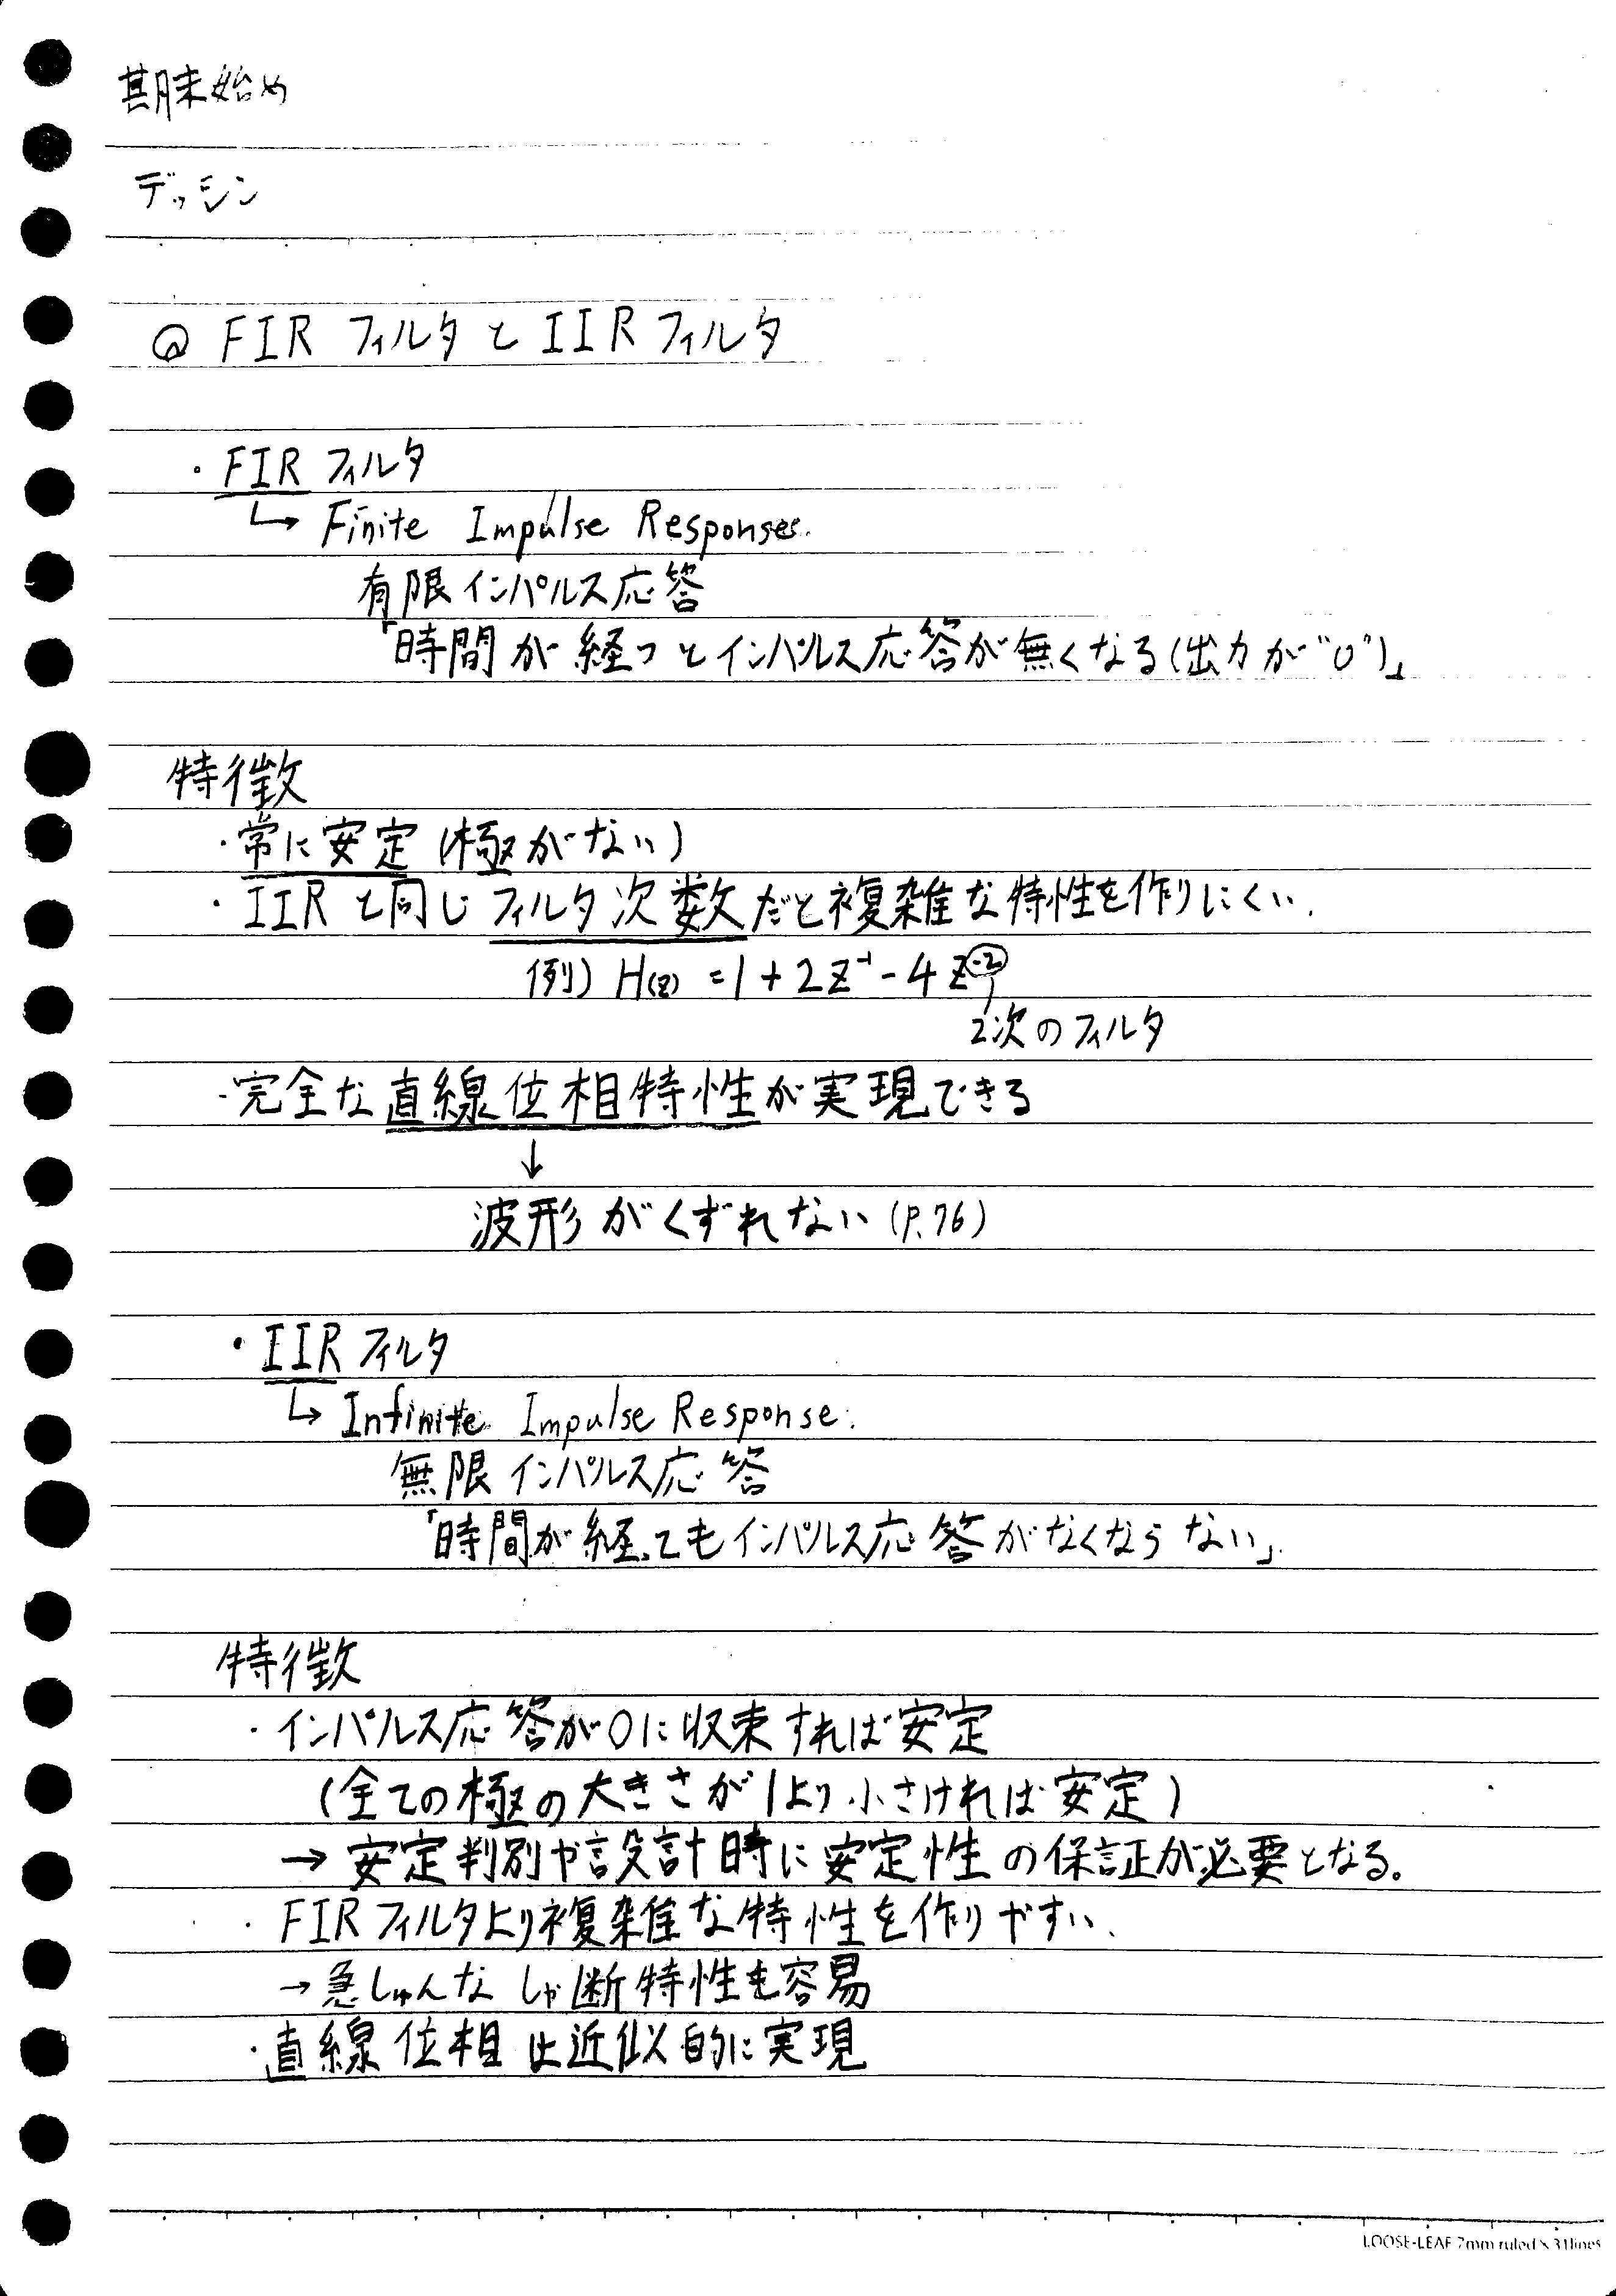 期末始め
デッシン
◎ FIR フィルタと IIR フィルタ
・FIR フィルタ
↳ Finite Impulse Responses.
有限インパルス応答
「時間が経つとインパルス応答が無くなる(出力が"0")」
特徴
・常に安定(極がない)
・IIRと同じフィルタ次数だと複雑な特性を作りにくい.
例) H(z) = 1 + 2z⁻¹ - 4z⁻²
2次のフィルタ
・完全な直線位相特性が実現できる
↓
波形がくずれない (P.76)
・IIR フィルタ
↳ Infinite Impulse Response.
無限インパルス応答
「時間が経ってもインパルス応答がなくならない」.
特徴
・インパルス応答が0に収束すれば安定
(全ての極の大きさが1より小さければ安定)
→ 安定判別や設計時に安定性の保証が必要となる。
・FIRフィルタより複雑な特性を作りやすい.
→急しゅんなしゃ断特性も容易
・直線位相は近似的に実現
LOOSE-LEAF 7mm ruled × 31lines